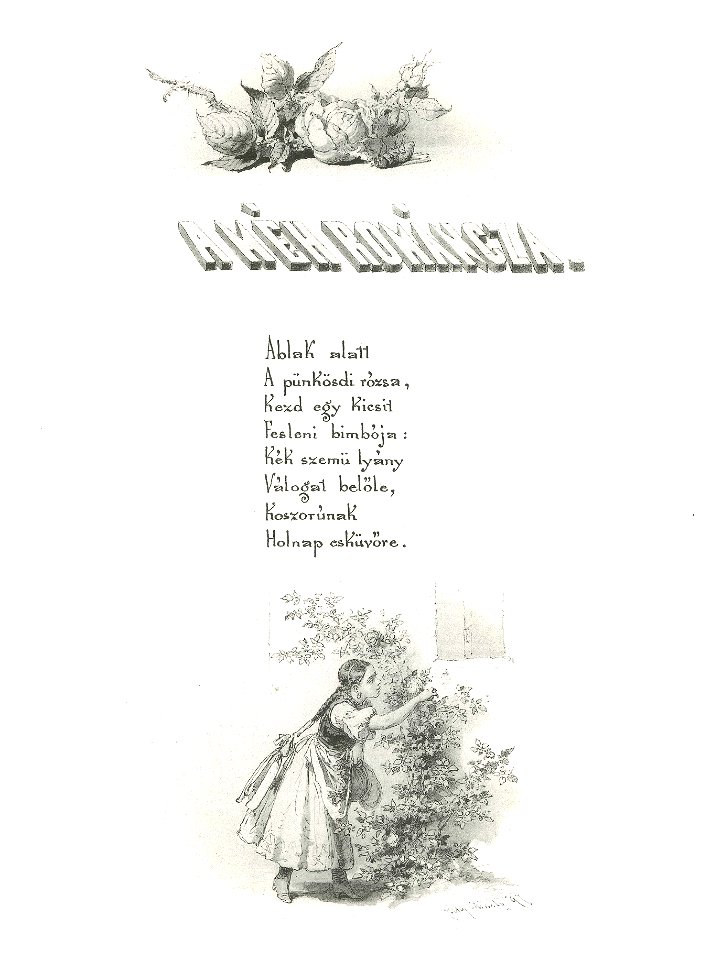 A MÉH ROMÁNCZA.
Ablak alatt
A pünkösdi rózsa,
Kezd egy kicsit
Fesleni bimbója:
Kék szemü lyány
Válogat belőle,
Koszorúnak
Holnap esküvőre.